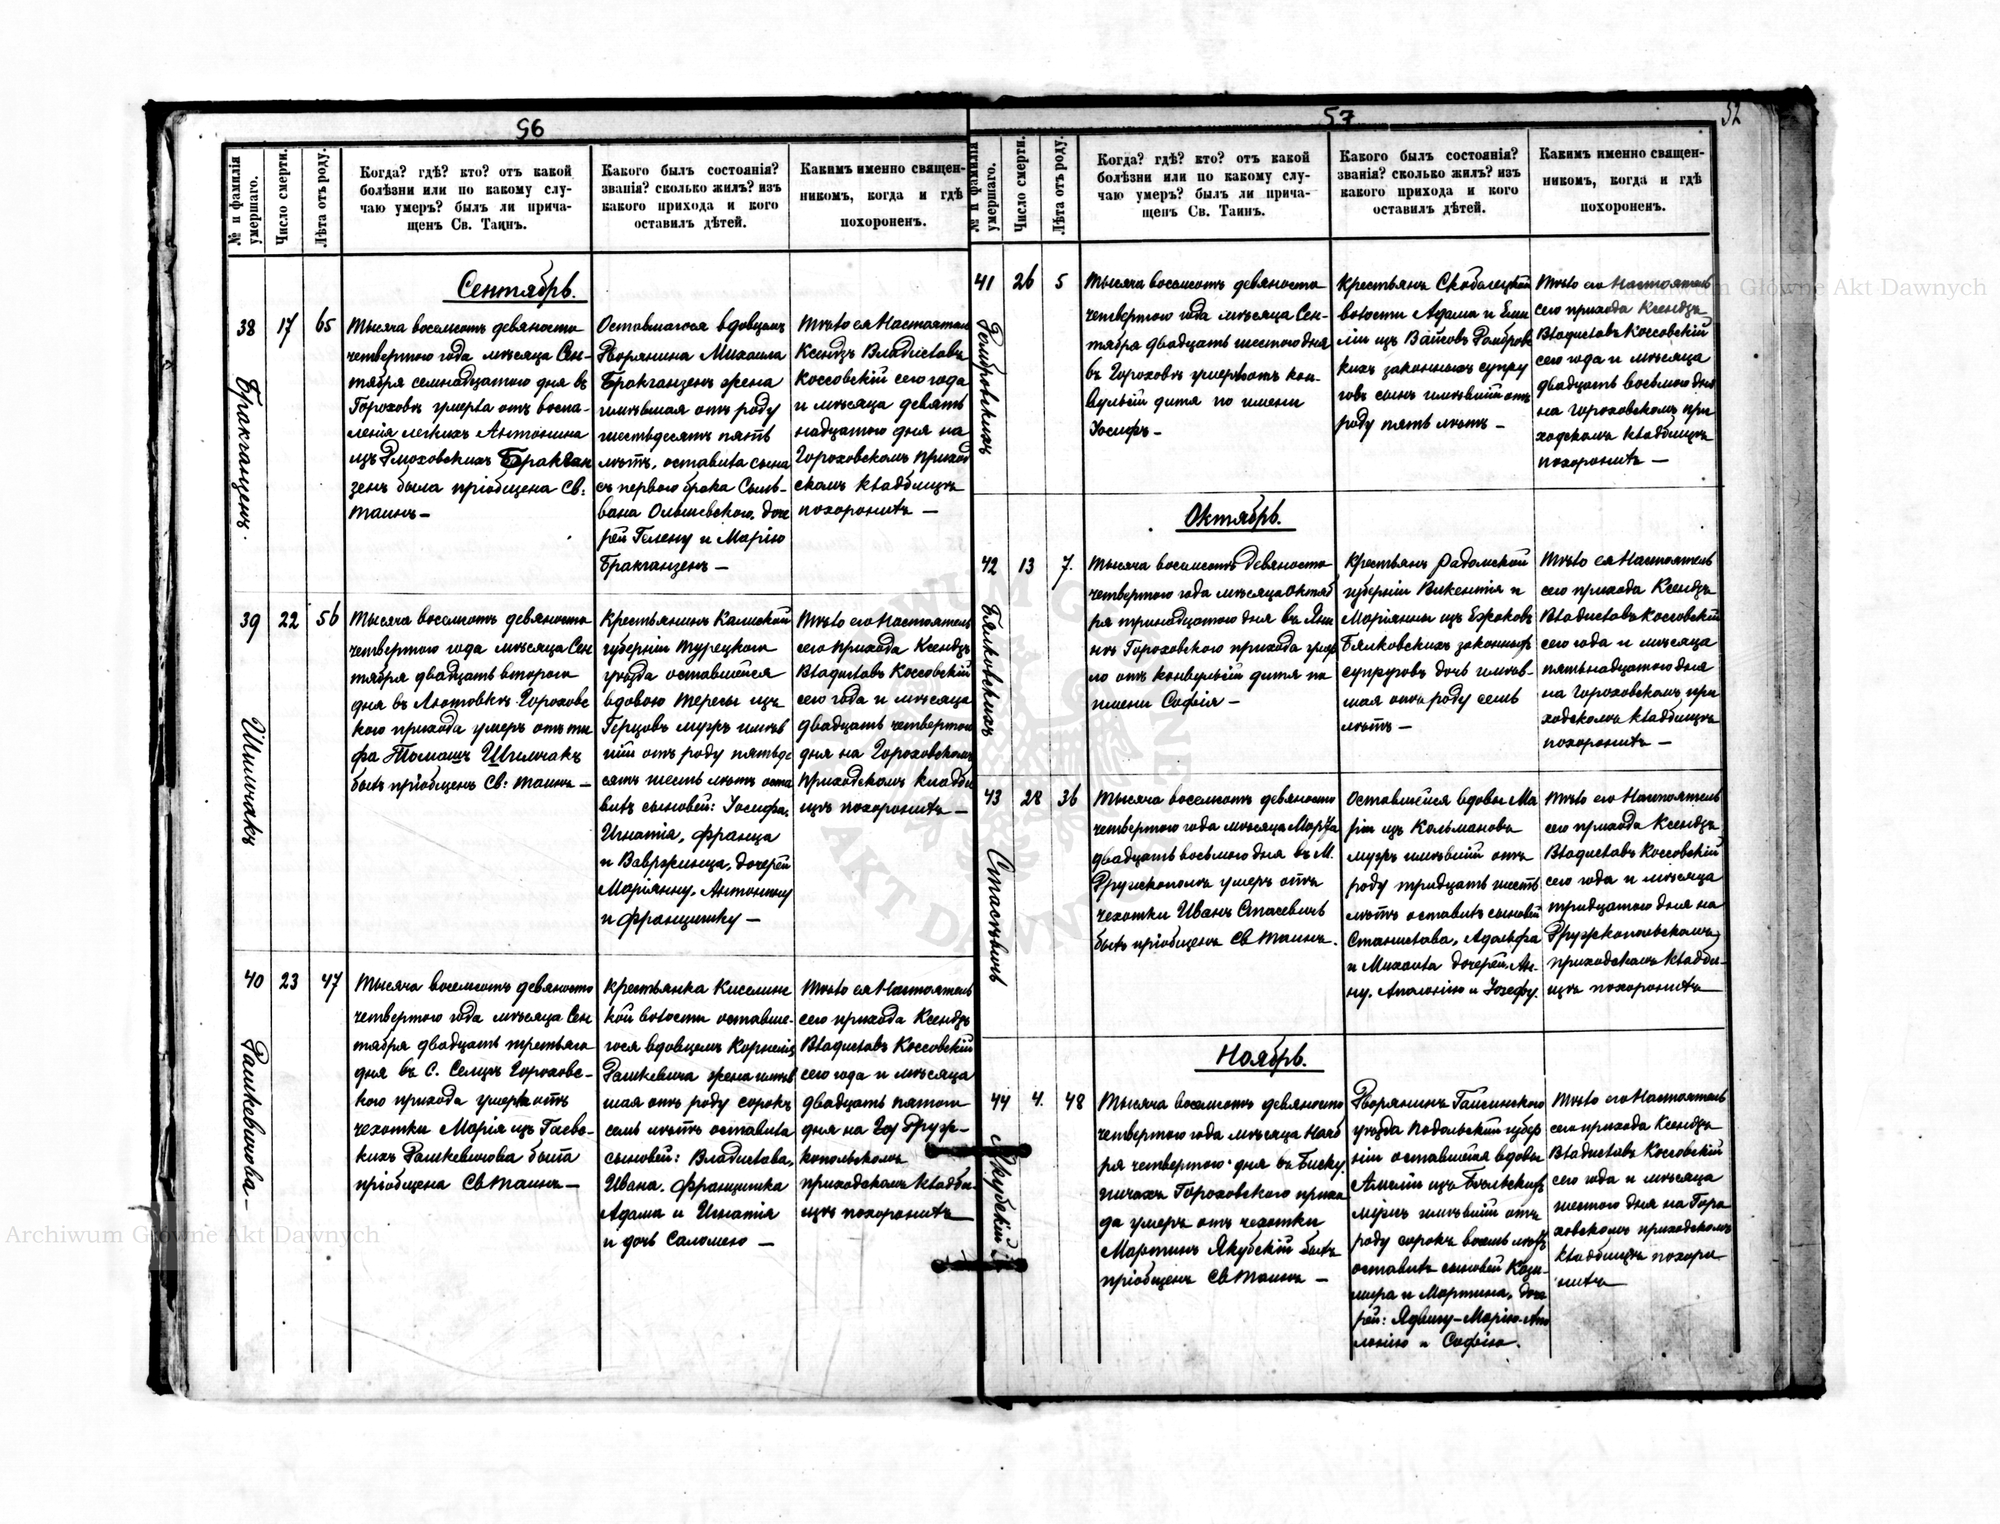 56
№ и фамилія умершаго.
Число смерти.
Лѣта отъ роду.
Когда? гдѣ? кто? отъ какой
болѣзни или по какому слу-
чаю умеръ? былъ ли прича-
щенъ Св. Таинъ.
Какого былъ состоянія?
званія? сколько жилъ? изъ
какого прихода и кого
оставилъ дѣтей.
Какимъ именно священ-
никомъ, когда и гдѣ
похороненъ.
Сентябрь.
38
17
65
Бракганценъ.
Тысяча восемсотъ девяносто
четвертого года мѣсяца Сен-
тября семнадцатого дня въ
Гороховѣ умерла отъ воспа-
ленія легкихъ Антонина
изъ Рмоховскихъ Бракган
зенъ была пріобщена Св:
Таинъ —
Оставшагося вдовцомъ
Дворянина Михаила
Бракганзенъ жена
имѣвшая отъ роду
шестьдесятъ пять
лѣтъ, оставила сына
съ первого брака Сыль-
вана Ольшевского, доче
рей Гелену и Марію
Бракганзенъ —
Тѣло ея Настоятель
Ксендзъ Владиславъ
Коссовскій сего года
и мѣсяца девять
надцатого дня на
Гороховскомъ приход
скомъ кладбищѣ
похоронилъ —
39
22
56
Шимчакъ
Тысяча восемсотъ девяносто
четвертого года мѣсяца Сен
тября двадцать второго
дня въ Лютовкѣ Гороховс
кого прихода умеръ отъ ти
фа Томашъ Шимчакъ
былъ пріобщенъ Св: Таинъ —
Крестьянинъ Калишской
губерніи Турецкого
уѣзда оставшейся
вдовою Тересы изъ
Герцовъ мужъ имѣв
шій отъ роду пятьде
сятъ шесть лѣтъ оста
вилъ сыновей: Іосифа,
Игнатія, Франца
и Вавржинца, дочерей
Маріянну, Антонину
и Францишку —
Тѣло его Настоятель
сего прихода Ксендзъ
Владиславъ Коссовскій
сего года и мѣсяца
двадцать четвертого
дня на Гороховскомъ
приходскомъ кладби
щѣ похоронилъ —
40
23
47
Рашкевичова —
Тысяча восемсотъ девяносто
четвертого года мѣсяца Сен
тября двадцать третьяго
дня въ С. Сельцѣ Гороховс-
кого прихода умерла отъ
чехотки Марія изъ Гаевс-
кихъ Рашкевичова была
пріобщена Св Таинъ —
Крестьянка Киселинс
кой волости оставше-
гося вдовцомъ Корнелія
Рашкевича жена имѣв
шая отъ роду сорокъ
семь лѣтъ оставила
сыновей: Владислава,
Ивана, Францишка
Адама и Игнатія
и дочь Саломею —
Тѣло ея Настоятель
сего прихода Ксендзъ
Владиславъ Коссовскій
сего года и мѣсяца
двадцать пятого
дня на Друж-
копольскомъ
приходскомъ кладби-
щѣ похоронилъ
57
52
№ и фамилія умершаго.
Число смерти.
Лѣта отъ роду.
Когда? гдѣ? кто? отъ какой
болѣзни или по какому слу-
чаю умеръ? былъ ли прича-
щенъ Св. Таинъ.
Какого былъ состоянія?
званія? сколько жилъ? изъ
какого прихода и кого
оставилъ дѣтей.
Какимъ именно священ-
никомъ, когда и гдѣ
похороненъ.
41
26
5
Домбровскихъ
Тысяча восемсотъ девяносто
четвертого года мѣсяца Сен-
тября двадцать шестого дня
въ Гороховѣ умерло отъ кон-
вульсій дитя по имени
Іосифъ —
Крестьянъ Скобелецкой
волости Адама и Еми
ліи изъ Вайсовъ Домбровс
кихъ законныхъ супру
говъ сынъ имѣвшій отъ
роду пять лѣтъ —
Тѣло его Настоятель
сего прихода Ксендзъ
Владиславъ Коссовскій
сего года и мѣсяца
двадцать восьмого дня
на Гороховскомъ при
ходскомъ кладбищѣ
похоронилъ —
Октябрь.
42
13
7.
Бялковскихъ
Тысяча восемсотъ девяносто
четвертого года мѣсяца Октяб
ря тринадцатого дня въ
Гороховского прихода умер
ло отъ конвульсій дитя по
имени Софія —
Крестьянъ Радомской
губерніи Викентія и
Маріянны изъ
Бялковскихъ законныхъ
супруговъ дочь имѣв-
шая отъ роду семь
лѣтъ —
Тѣло ея Настоятель
сего прихода Ксендзъ
Владиславъ Коссовскій
сего года и мѣсяца
пятьнадцатого дня
на Гороховскомъ при
ходскомъ кладбищѣ
похоронилъ —
43
28
36
Стасевичъ
Тысяча восемсотъ девяносто
четвертого года мѣсяца Марта
двадцать восьмого дня въ М.
Дружкополѣ умеръ отъ
чехотки Иванъ Стасевичъ
былъ пріобщенъ Св Таинъ.
Оставшейся вдовы Ма
ріи изъ Кольмановъ
мужъ имѣвшій отъ
роду тридцать шесть
лѣтъ оставилъ сыновей
Станислава, Адольфа
и Михаила дочерей Ан-
ну, Аполонію и Юзефу.
Тѣло его Настоятель
сего прихода Ксендзъ
Владиславъ Коссовскій
сего года и мѣсяца
тридцатого дня на
Дружкопольскомъ
приходскомъ кладби-
щѣ похоронилъ
Ноябрь.
44
4.
48
Якубскій
Тысяча восемсотъ девяносто
четвертого года мѣсяца Нояб
ря четвертого дня въ Биску
пичахъ Гороховского прихо
да умеръ отъ чехотки
Мартинъ Якубскій былъ
пріобщенъ Св Таинъ —
Дворянинъ Гайсинского
уѣзда Подольской губер
ніи оставшейся вдовы
Амеліи изъ Бѣльскихъ
мужъ имѣвшій отъ
роду сорокъ восемь лѣтъ
оставилъ сыновей Кази-
мира и Мартина, доче
рей: Ядвигу-Марію-Апо
лонію и Софію.
Тѣло его Настоятель
сего прихода Ксендзъ
Владиславъ Коссовскій
сего года и мѣсяца
шестого дня на Горо
ховскомъ приходскомъ
кладбищѣ похоро
нилъ
Archiwum Główne Akt Dawnych
Archiwum Główne Akt Dawnych
ARCHIWUM GŁÓWNE AKT DAWNYCH